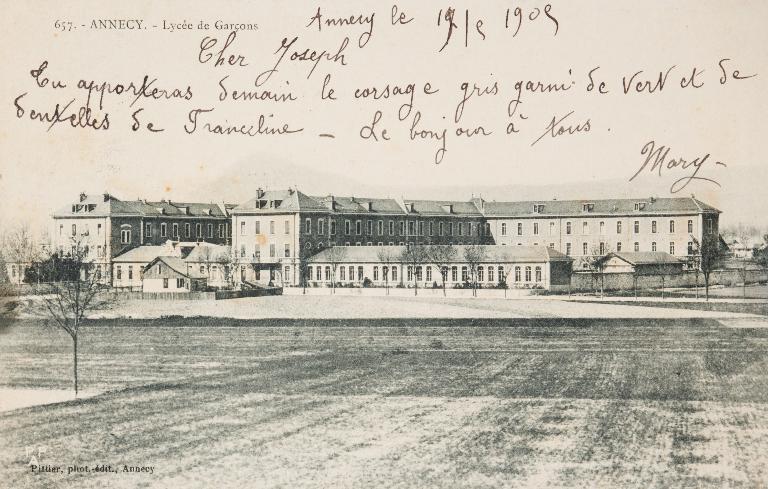 657. - ANNECY. - Lycée de Garçons
Annecy le 19/5 1905
Cher Joseph
Tu apporteras demain le corsage gris garni de vert et de
dentelles de Franceline - Le bonjour à tous.
Mary -
Pittier, phot.-édit., Annecy